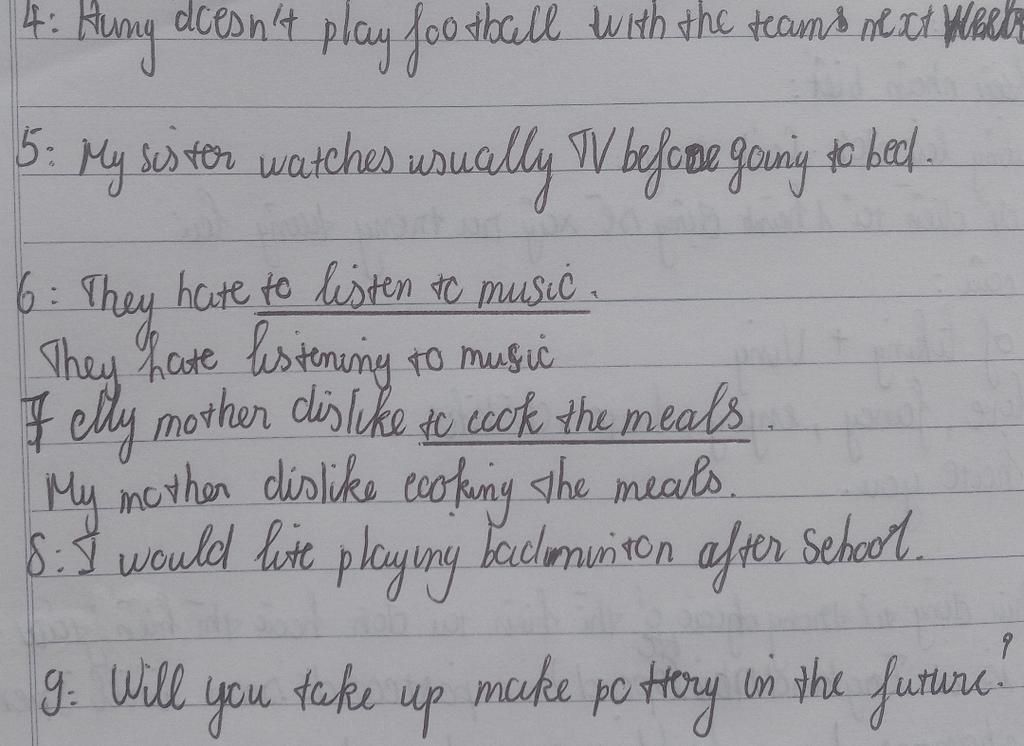 4: Hung doesn't play football with the teams next week
5: My sister watches usually TV before going to bed.
6: They hate to listen to music.
They hate listening to music
7 My mother dislike to cook the meals.
My mother dislike cooking the meals.
8: I would like playing badminton after school.
9: Will you take up make pottery in the future?